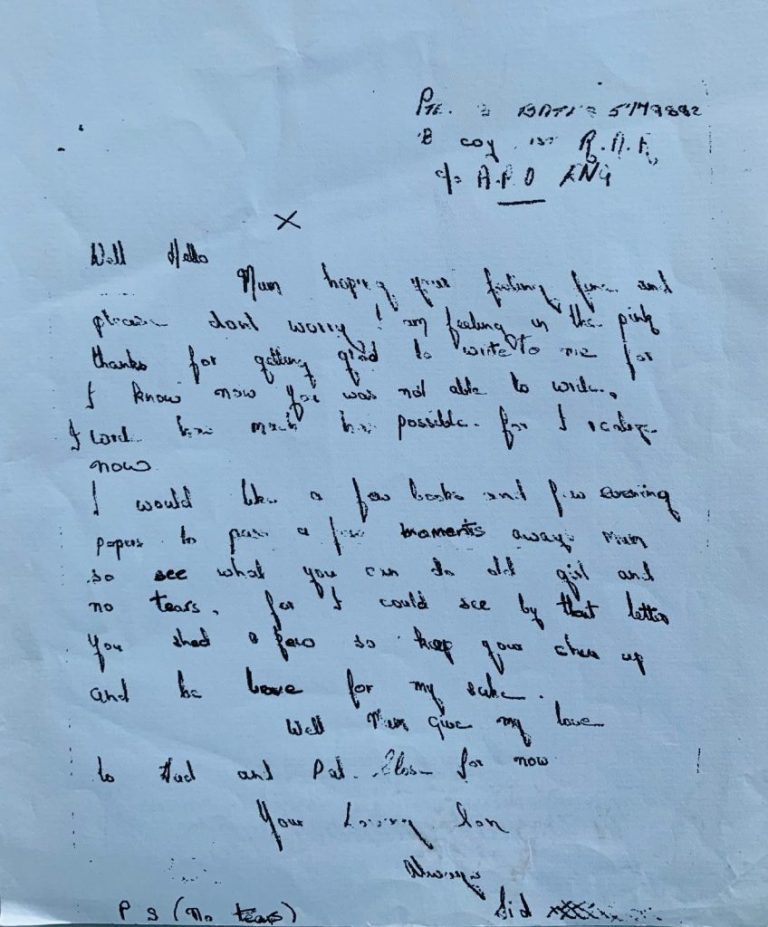 Pte. S BATES 5147882
B coy 1st R.N.F.
c/o A.P.O ENG
X
Well Hello
Mum hoping your feeling fine and
please dont worry I am feeling in the pink
thanks for getting to write to me for
I know now you was not able to write.
I how much possible for I realize
now
I would like a few books and few evening
papers to pass a few moments away Mum
so see what you can do old girl and
no tears. for I could see by that letter
You shed a few so keep your chin up
and be brave for my sake.
Well Mum give my love
to Dad and Pat. Close for now
Your Loving Son
Always
Sid xxxxx
P S (No tears)